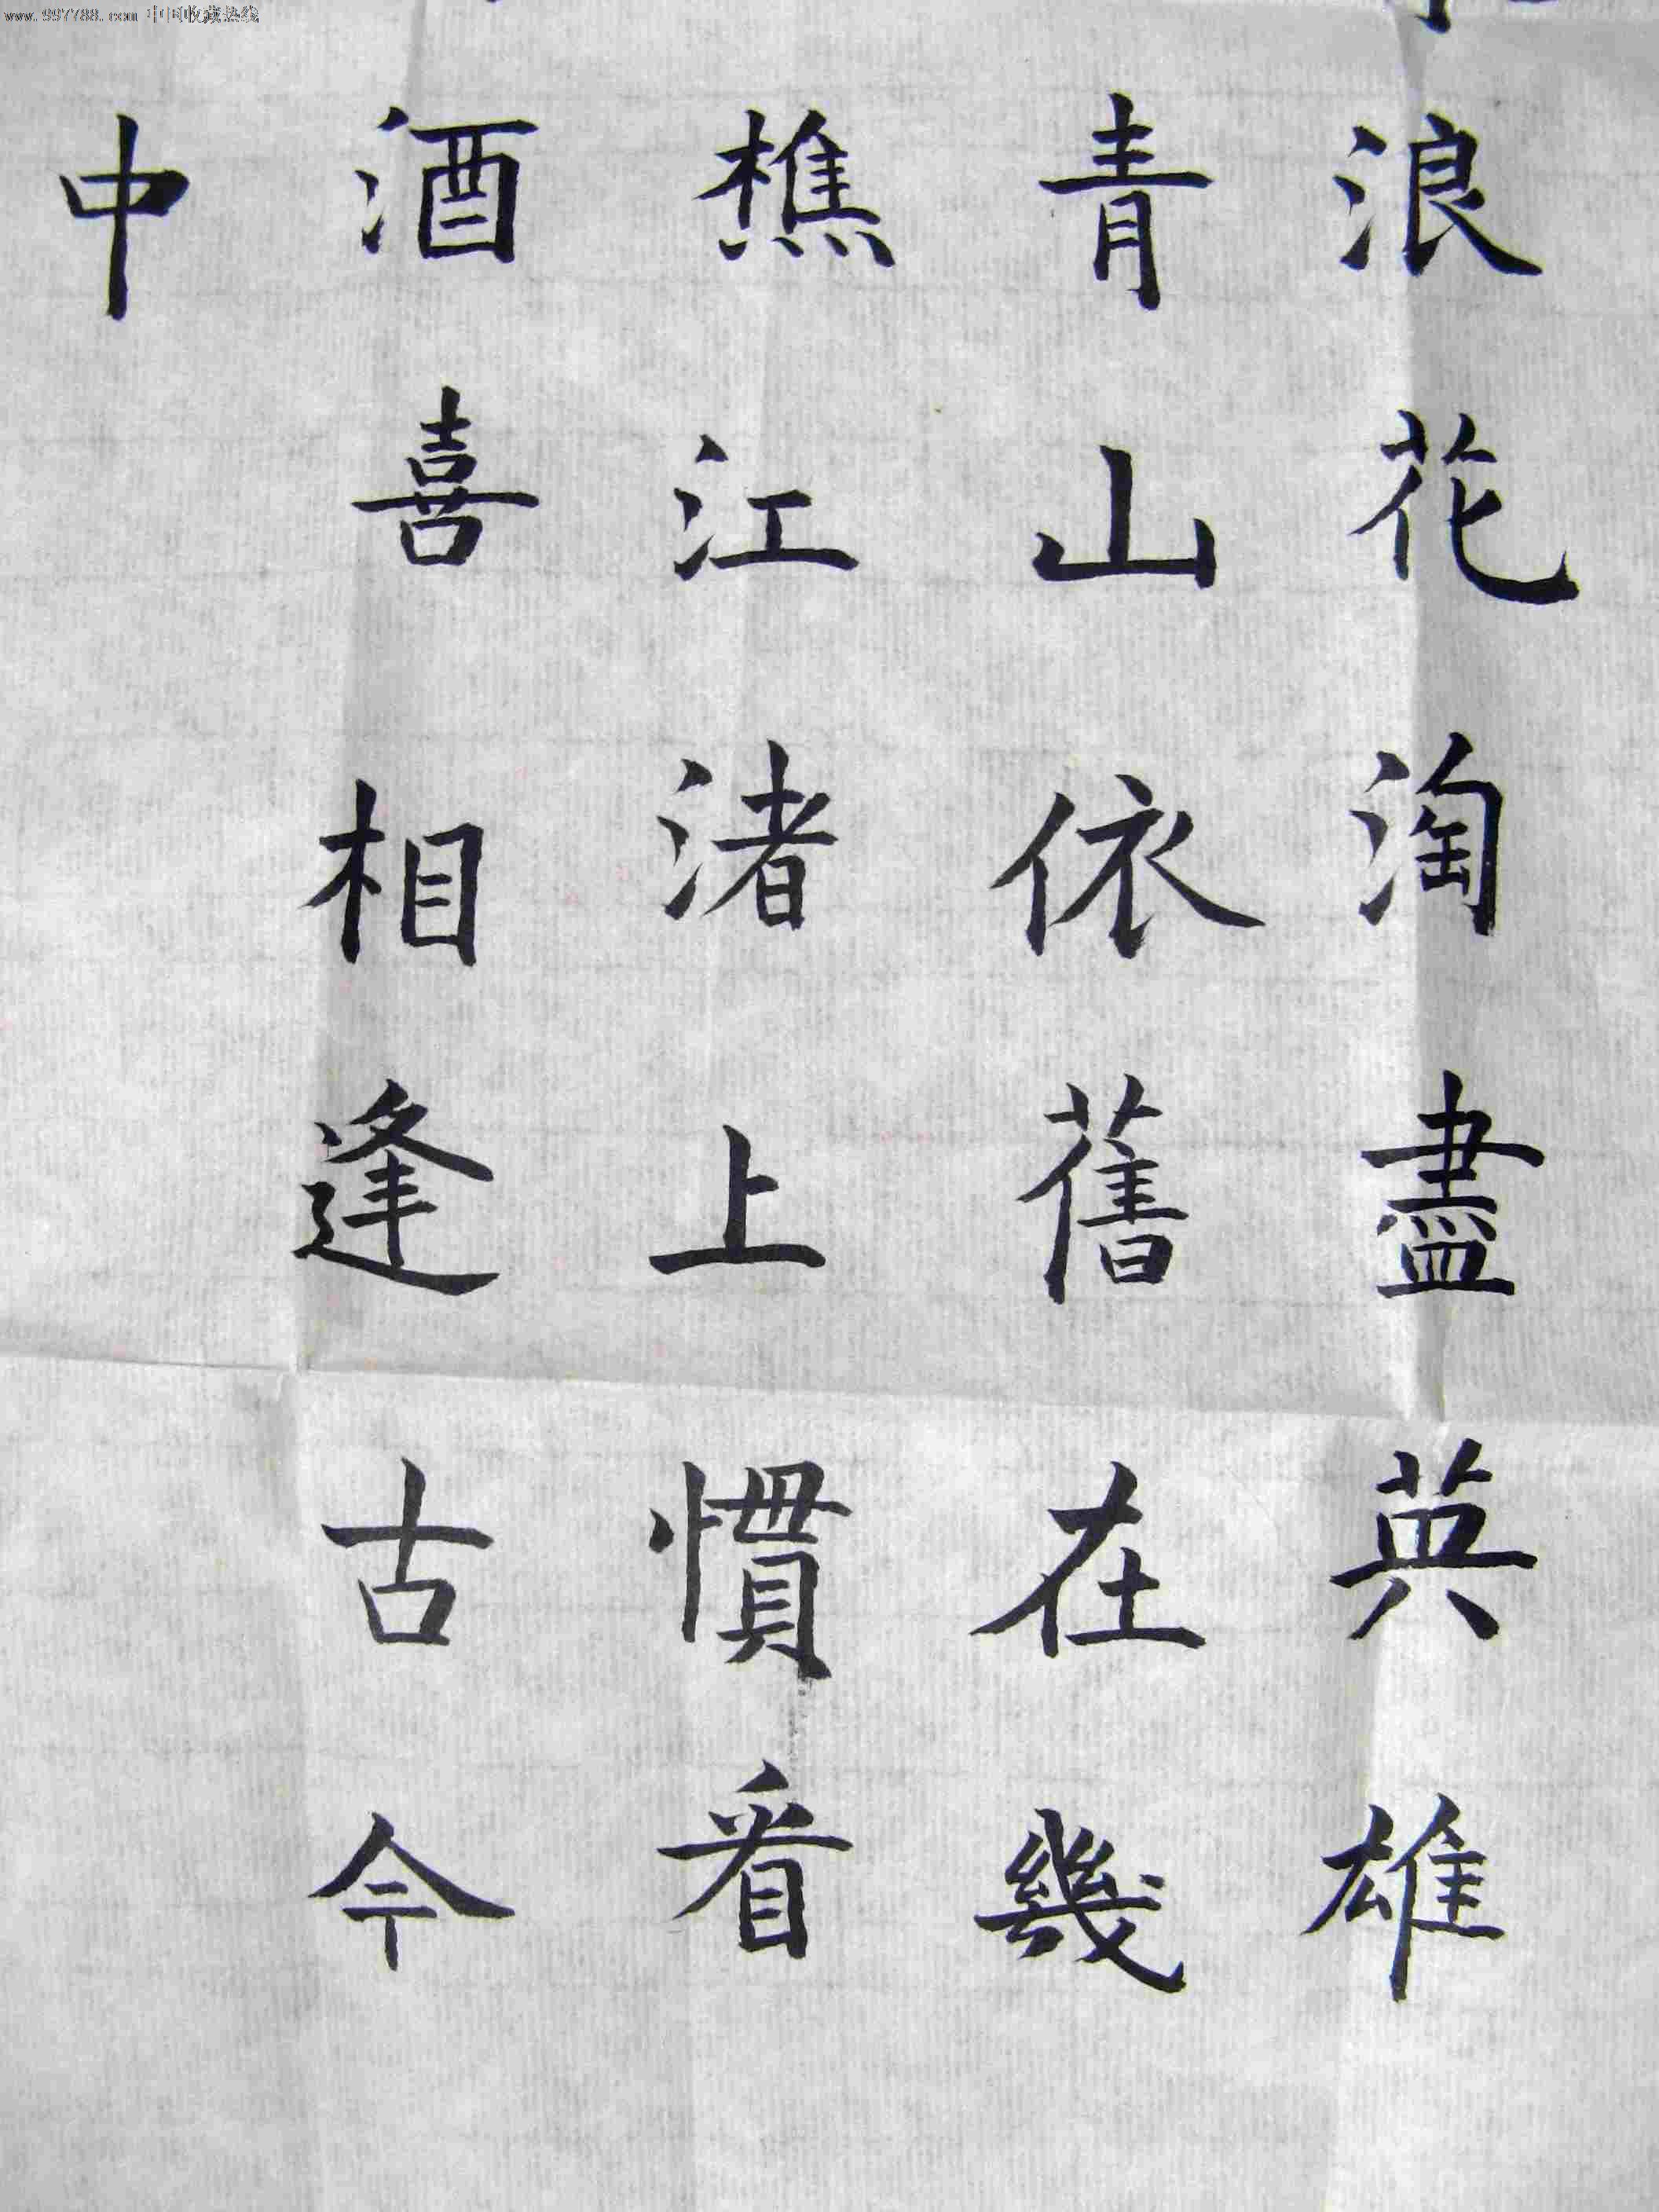 www.997788.com 中国收藏热线
浪花淘盡英雄
青山依舊在幾
樵江渚上慣看
酒喜相逢古今
中